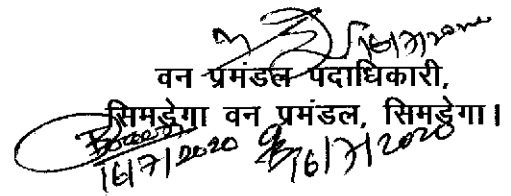 16/7/2020
वन प्रमंडल पदाधिकारी,
सिमडेगा वन प्रमंडल, सिमडेगा।
16/7/2020 16/7/2020